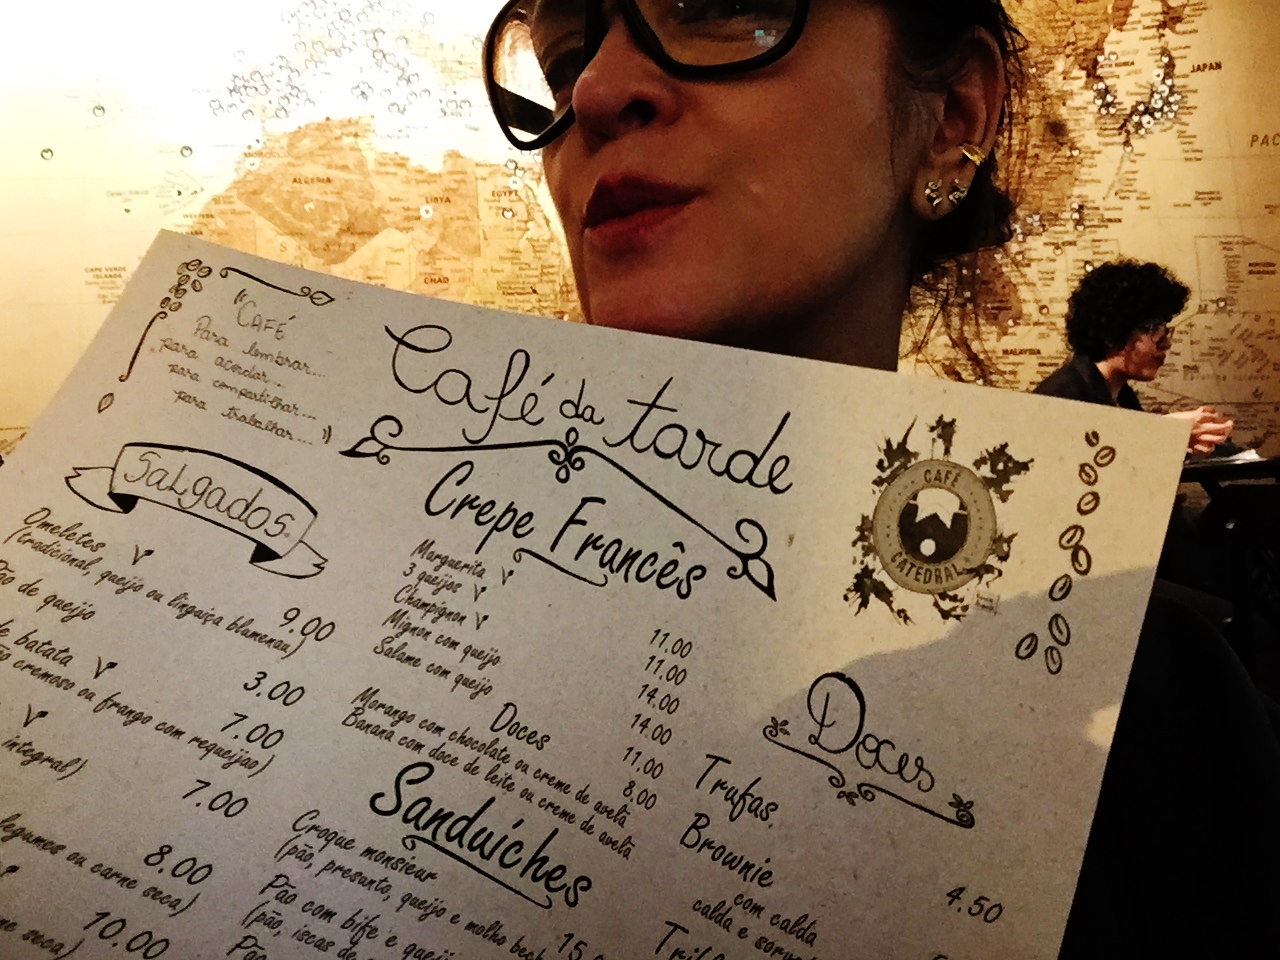 JAPAN
PAC
ALGERIA
LIBYA
EGYPT
CHAD
CAPE VERDE
ISLANDS
MALAYSIA
"CAFÉ
Para lembrar...
para acordar...
para compartilhar...
para trabalhar..."
Café da tarde
CAFÉ
CATEDRAL
Salgados
Omeletes
(tradicional, queijo ou linguiça blumenau)
9.00
ão de queijo
3.00
de batata
ão cremoso ou frango com requeijão)
7.00
integral)
7.00
legumes ou carne seca)
8.00
ne seca)
10.00
Crepe Francês
Marguerita
3 queijos
Champignon
Mignon com queijo
Salame com queijo
11.00
11.00
14.00
14.00
11.00
8.00
Doces
Morango com chocolate ou creme de avelã
Banana com doce de leite ou creme de avelã
Sanduíches
Croque monsieur
(pão, presunto, queijo e molho bech
Pão com bife e queij
(pão, iscas de
15.0
Pão
Doces
Trufas
Brownie
com calda
calda e sorve
4.50